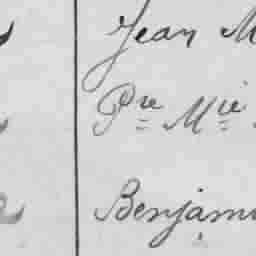 Jean M
Pre Mie
Benjami